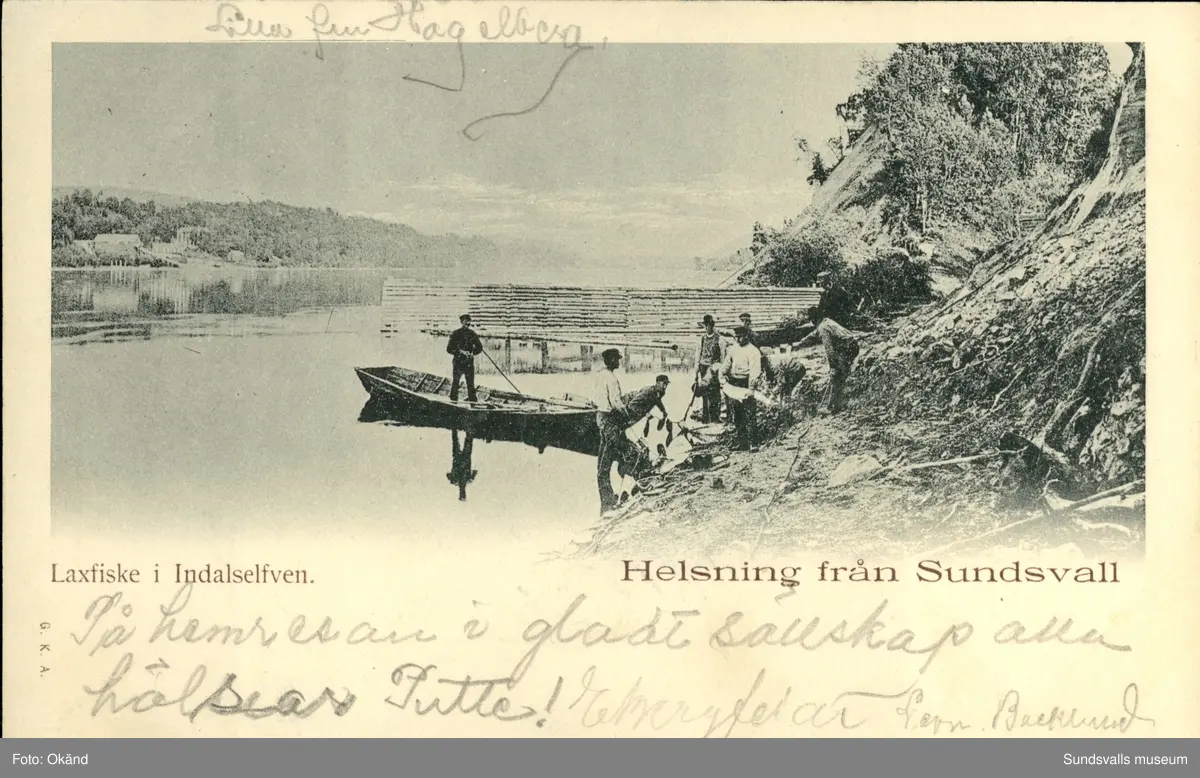 Hagelberg.
Laxfiske i Indalselfven.
Helsning från Sundsvall
G. K. A.
På hemresan i gladt sällskap alla
hälsar Putte!
Backlund
Foto: Okänd
Sundsvalls museum